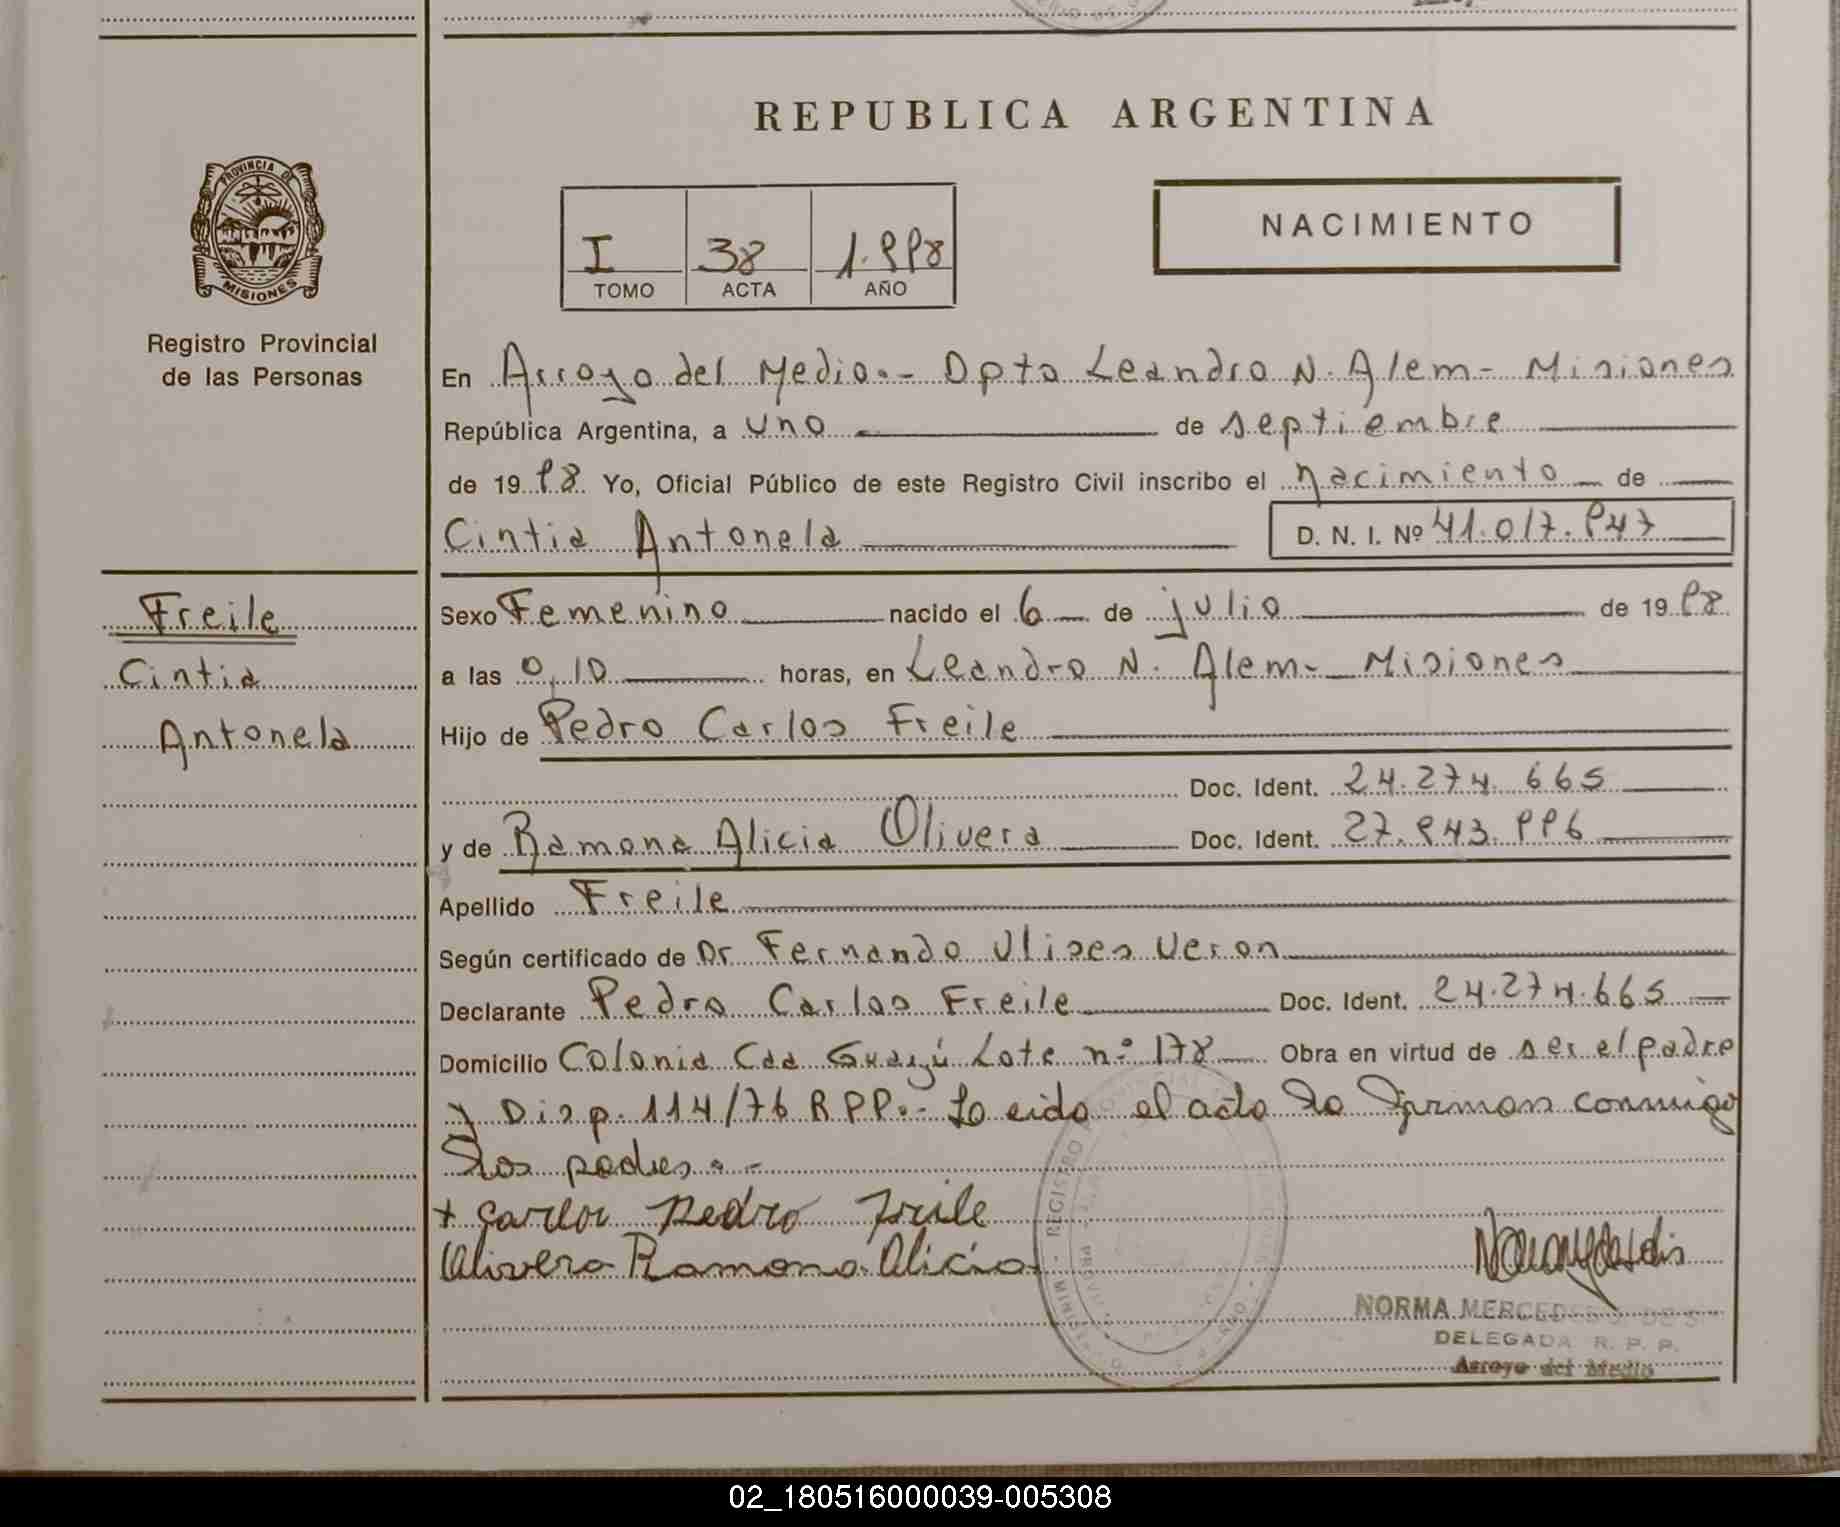 REPUBLICA ARGENTINA
PROVINCIA DE
MISIONES
Registro Provincial
de las Personas
I 38 1.998
TOMO ACTA AÑO
NACIMIENTO
En Arroyo del Medio.- Dpto Leandro N. Alem - Misiones
República Argentina, a uno de septiembre
de 1998 Yo, Oficial Público de este Registro Civil inscribo el nacimiento de
Cintia Antonela D. N. I. Nº 41.017.947
Freile
Cintia
Antonela
Sexo Femenino nacido el 6 de julio de 1998
a las 0,10 horas, en Leandro N. Alem - Misiones
Hijo de Pedro Carlos Freile
Doc. Ident. 24.274.665
y de Ramona Alicia Olivera Doc. Ident. 27.943.996
Apellido Freile
Según certificado de Dr Fernando Ulises Veron
Declarante Pedro Carlos Freile Doc. Ident. 24.274.665
Domicilio Colonia Caa Guazú Lote nº 178 Obra en virtud de ser el padre
y Disp. 114/76 R PP.- Leida el acta la firman conmigo
los padres.-
+ Carlos Pedro Freile
Olivera Ramona Alicia
REGISTRO PROVINCIAL
NORMA MERCEDES
DELEGADA R. P. P.
Arroyo del Medio
02_180516000039-005308